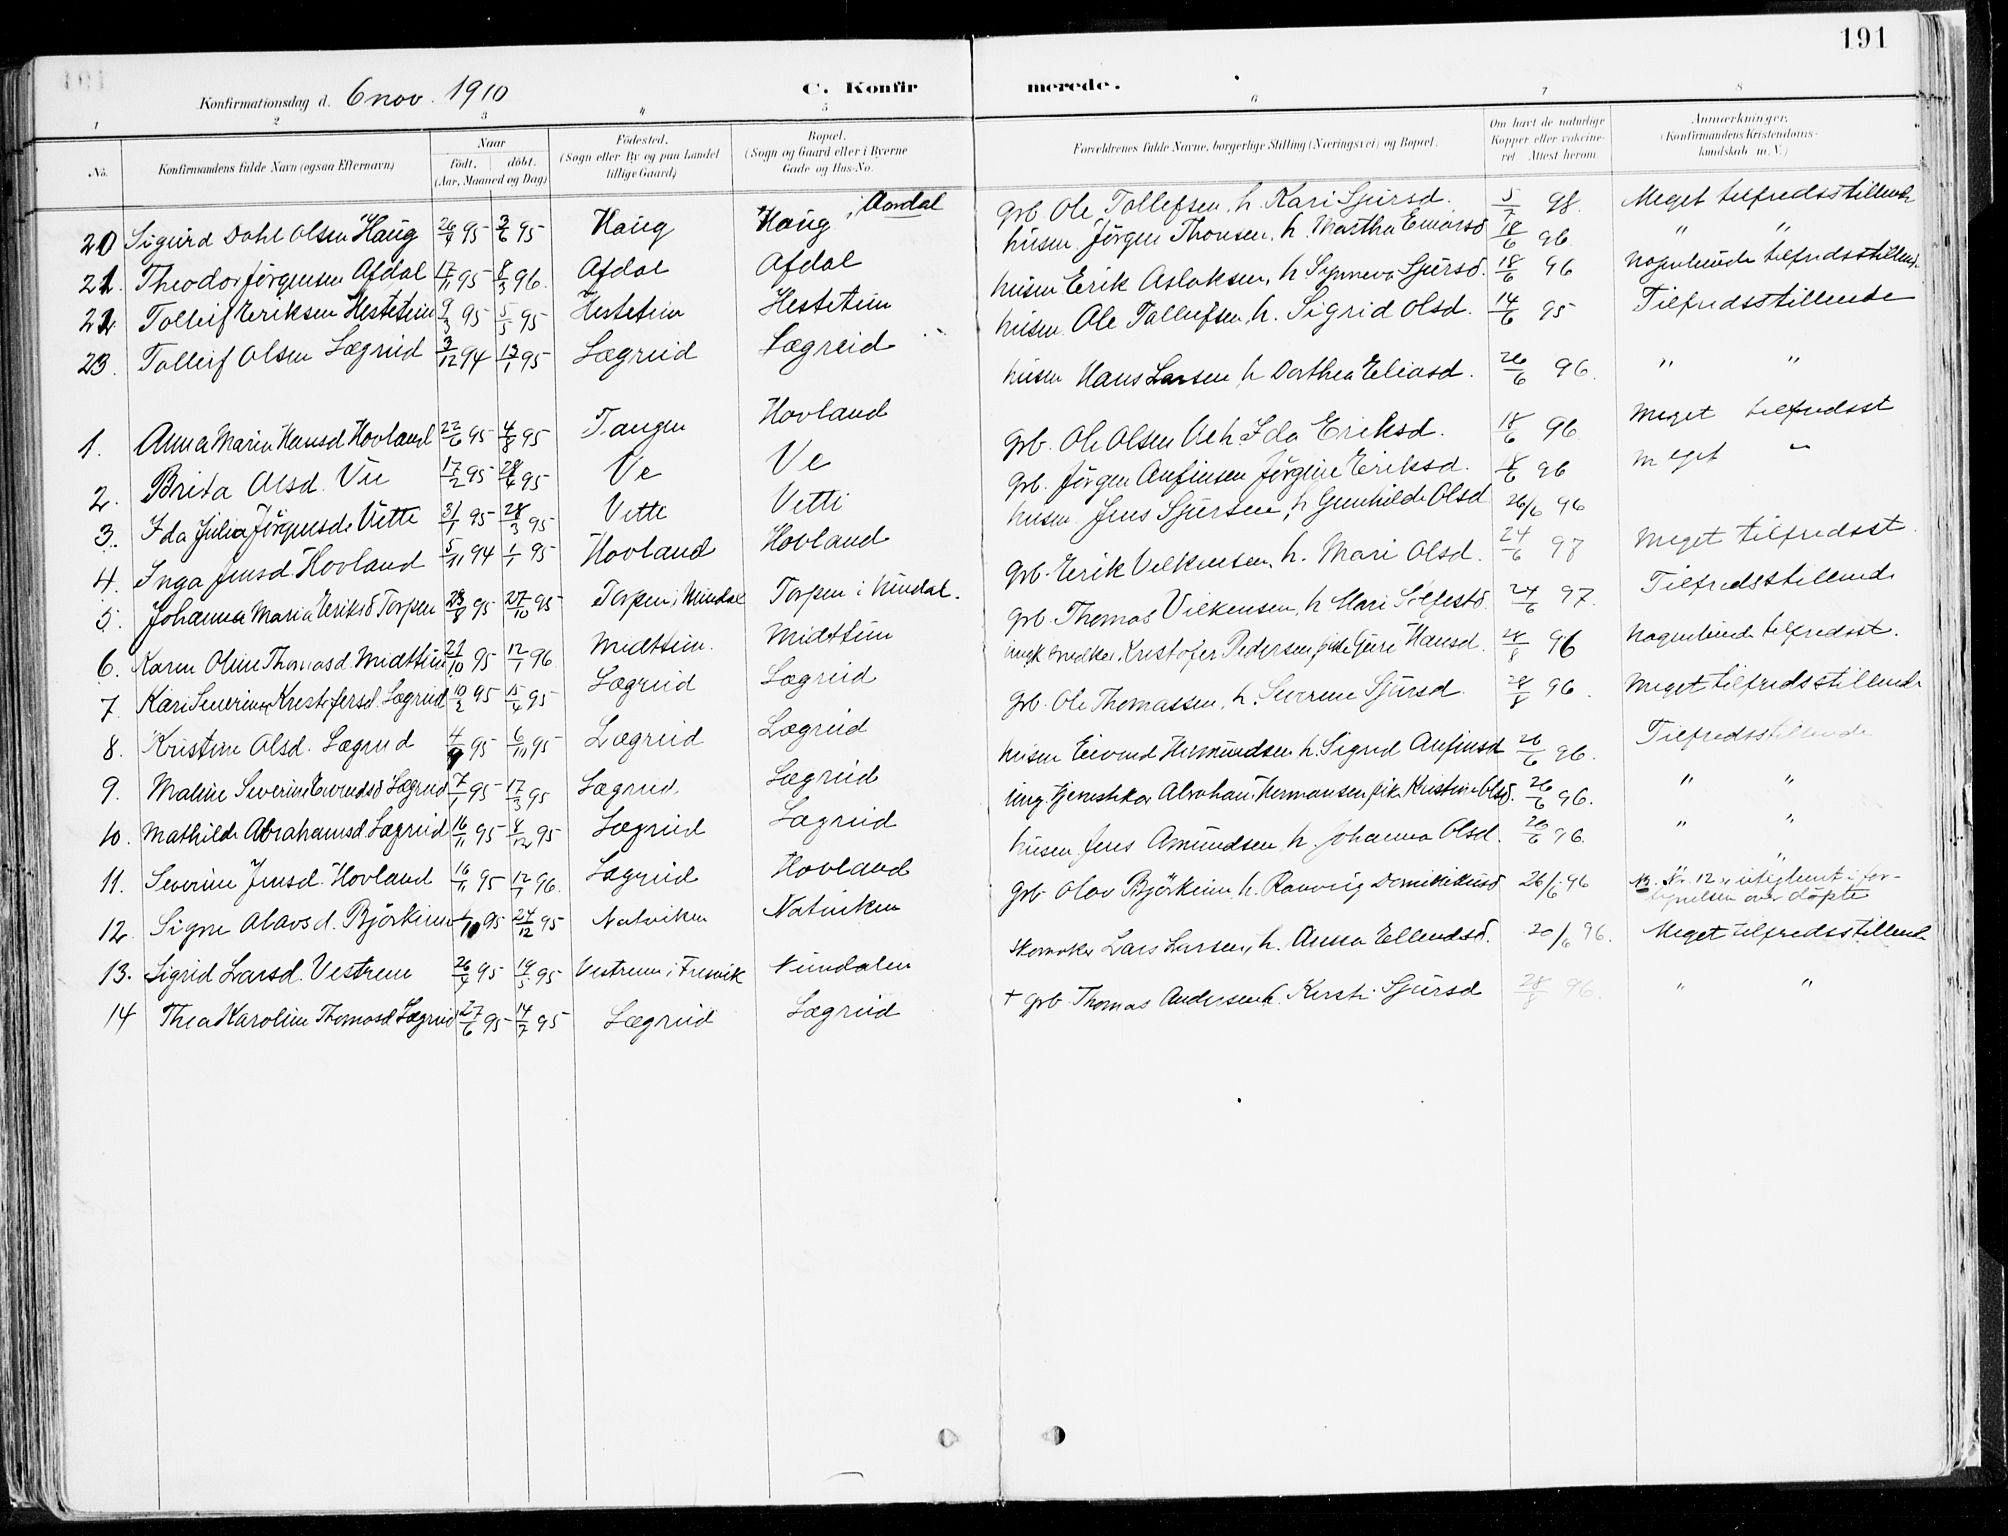 191
Konfirmationsdag d. 6 nov. 1910 C. Konfirmerede.
1 2 3 4 5 6 7 8
No. Konfirmandens fulde Navn (ogsaa Efternavn) Naar født. døbt. (Aar, Maaned og Dag) Fødested. (Sogn eller By og paa Landet tillige Gaard) Bopæl. (Sogn og Gaard eller i Byerne Gade og Hus-No. Forældrenes fulde Navne, borgerlige Stilling (Næringsvei) og Bopæl. Om havt de naturlige Kopper eller vakcineret Attest herom. Anmærkninger. (Konfirmandens Kristendomskundskab m. V.)
20 Sigurd Dahl Olsen Haug 26/4 95 3/6 95 Haug Haug i Aardal grb. Ole Tollefsen, h. Kari Sjursd. 5/7 98. Meget tilfredsstillende
21. Theodor Jörgensen Afdal 17/11 95 8/3 96. Afdal Afdal husm. Jörgen Thomsen, h. Martha Einarsd 18/6 96 " "
22 Tolleif Eriksen Hestetein 9/3 95 5/5 95 Hestetein Hestetein husm Erik Aslaksen, h Synneva Sjursd. 18/6 96 nogenlunde tilfredsstillend.
23. Tolleif Olsen Lægreid 3/12 94 13/1 95 Lægreid Lægreid husm. Ole Tolleifsen, h. Sigrid Olsd. 14/6 95 Tilfredsstillende
1. Anna Marie Hansd Hovland 22/6 95 4/8 95 Tangen Hovland husm Hans Larsen, h Dorthea Eliasd. 26/6 96. " "
2. Brita Olsd. Vee 17/2 95 28/4 95 Ve Ve grb. Ole Olsen Ve h Ida Eriksd. 18/6 96 Meget tilfredsst
3. Ida Julia Jörgensd. Vette 31/1 95 28/3 95 Vette Vetti grb. Jörgen Anfinsen Jörgine Eriksd. 18/6 96 meget "
4. Inga Jensd. Hovland 5/11 94 1/1 95 Hovland Hovland husm. Jens Sjursen, h Gunhilde Olsd 26/6 96
5. Johanna Maria Eriksd Torpen 23/8 95 27/10 95 Torpen i Nundal Torpen i Nundal. grb. Erik Velkensen, h. Mari Olsd. 24/6 97 Meget tilfredsst.
6. Karen Oline Thomasd. Midttun 21/10 95 12/1 96. Midttun. Midttun grb. Thomas Vilkensen, h Mari Solfestd. 24/6 97. Tilfredsstillende
7. Kari Severine Kristofersd. Lægreid 10/2 95 15/4 95 Lægreid Lægreid ungk snedker Kristofer Pedersen, pike Guri Hansd. 28/8 96 nogenlunde tilfredsst.
8. Kristine Olsd. Lægreid 4/9 95 6/11 95 Lægreid Lægreid grb. Ole Thomassen, h. Severine Sjursd. 28/8 96. Meget tilfredsstillende
9. Maline Severine Eivindsd Lægreid 7/1 95 17/3 95 Lægreid. Lægreid husm Eivind Hermundsen h. Sigrid Anfinsd 26/6 96. Tilfredsstillende
10. Mathilde Abrahamsd Lægreid 16/11 95 8/12 95 Lægreid Lægreid ung. tjenestekar Abraham Hermansen, pik. Kristine Olsd. 26/6 96. " "
11. Severine Jensd. Hovland 16/11 95 12/1 96. Lægreid Hovland husm. Jens Amundsen, h. Johanna Olsd. 26/6 96. " "
12. Signe Olavsd. Björkum /10 95 24/12 95 Natviken Natviken grb. Olav Björkum, h. Ranveig 26/6 96 NB. Nr. 12 er uteglemt i fortegnelsen over döpte
13. Sigrid Larsd. Vestreim 26/4 95 19/5 95 Vestreim i Fresvik Nundalen Skomaker Lars Larsen, h. Anna Ellendsd. 20/6 96. Meget tilfredsstillend
14 Thea Karoline Thomasd Lægreid 27/6 95 14/7 95 Lægreid Lægreid + grb. Thomas Andersen h. Kirsti Sjursd 28/8 96. " "